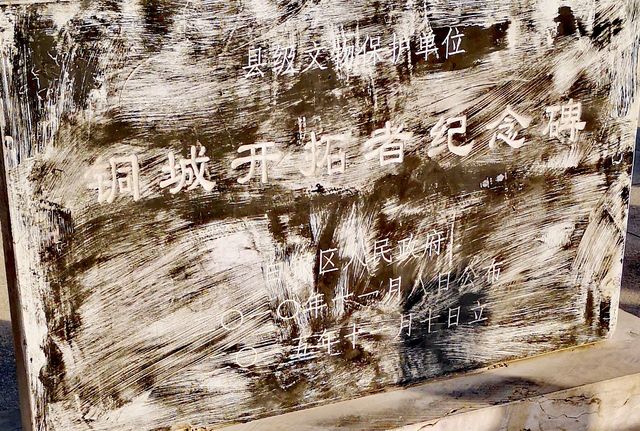 县级文物保护单位
铜城开拓者纪念碑
区人民政府
〇〇年十一月八日公布
〇五年十二月十日立